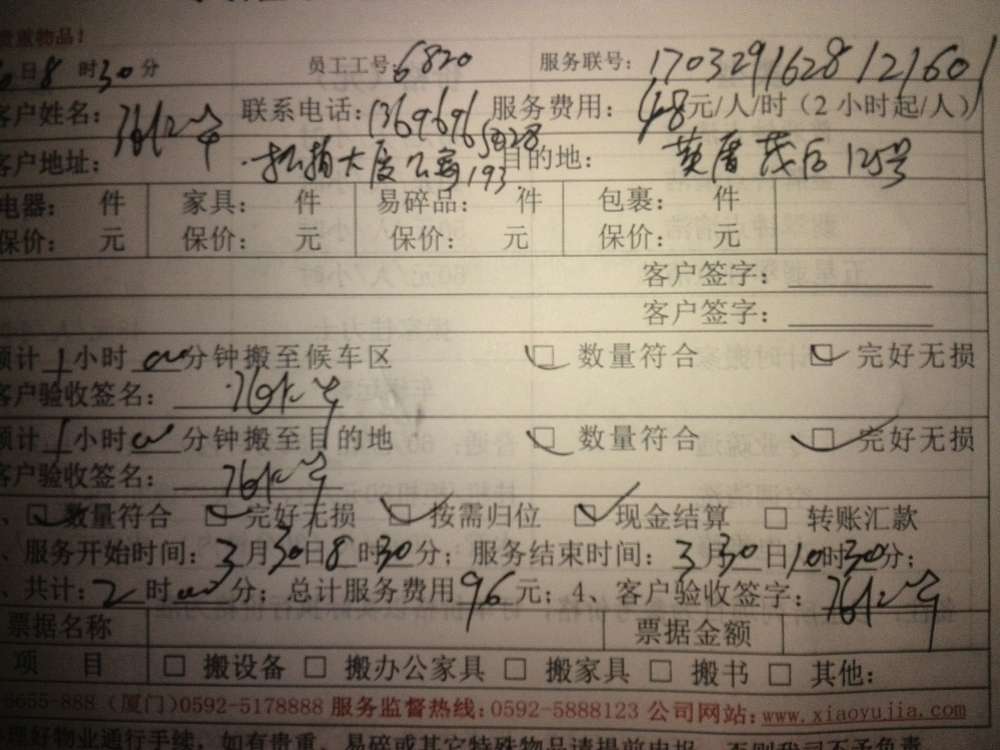 贵重物品！
日8时30分 员工工号：6820 服务联号：170329162812160
客户姓名： 联系电话：13696965028 服务费用：48元/人/时（2小时起/人）
客户地址： 大厦公寓193 目的地： 125号
电器： 件 家具： 件 易碎品： 件 包裹： 件
保价： 元 保价： 元 保价： 元 保价： 元
客户签字：
客户签字：
预计1小时00分钟搬至候车区 □ 数量符合 □ 完好无损
客户验收签名：
预计1小时00分钟搬至目的地 □ 数量符合 □ 完好无损
客户验收签名：
、□数量符合 □ 完好无损 □ 按需归位 □ 现金结算 □ 转账汇款
、服务开始时间：3月30日8时30分；服务结束时间：3月30日10时30分；
、共计：2时00分；总计服务费用96元；4、客户验收签字：
票据名称 票据金额
项 目 □ 搬设备 □ 搬办公家具 □ 搬家具 □ 搬书 □ 其他：
8655-888（厦门）0592-5178888 服务监督热线：0592-5888123 公司网站：www.xiaoyujia.com
理好物业通行手续，如有贵重、易碎或其它特殊物品请提前申报，否则我司不予负责